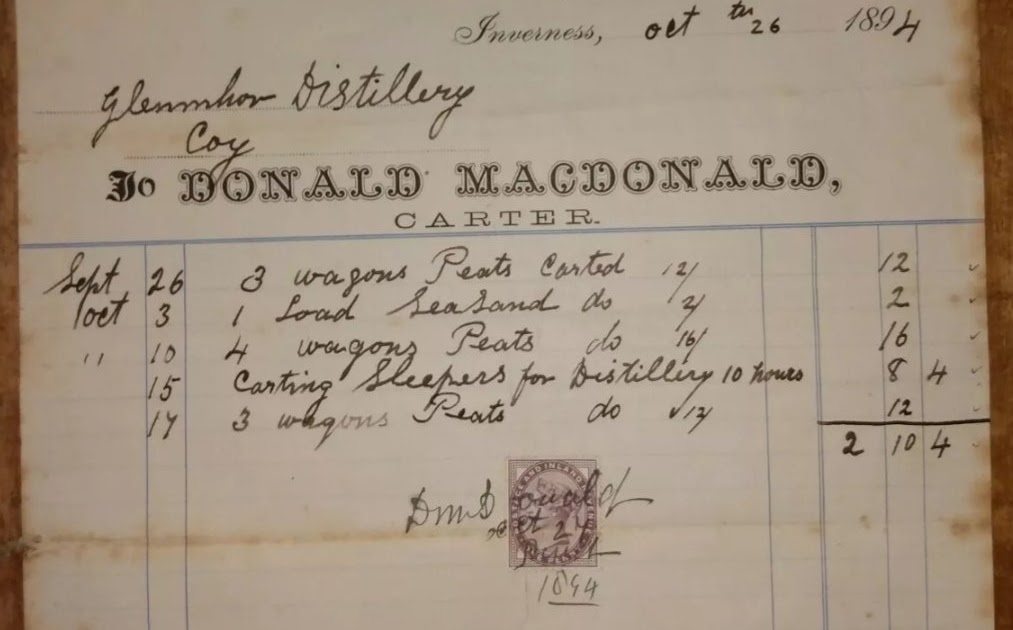 Inverness, oct 26th 1894
Glenmhor Distillery
Coy
To DONALD MACDONALD,
CARTER.
Sept 26 3 wagons Peats Carted 12/ 12
oct 3 1 Load SeaSand do 2/ 2
" 10 4 wagons Peats do 16/ 16
15 Carting Sleepers for Distillery 10 hours 8 4
17 3 wagons Peats do 12/ 12
2 10 4
1894